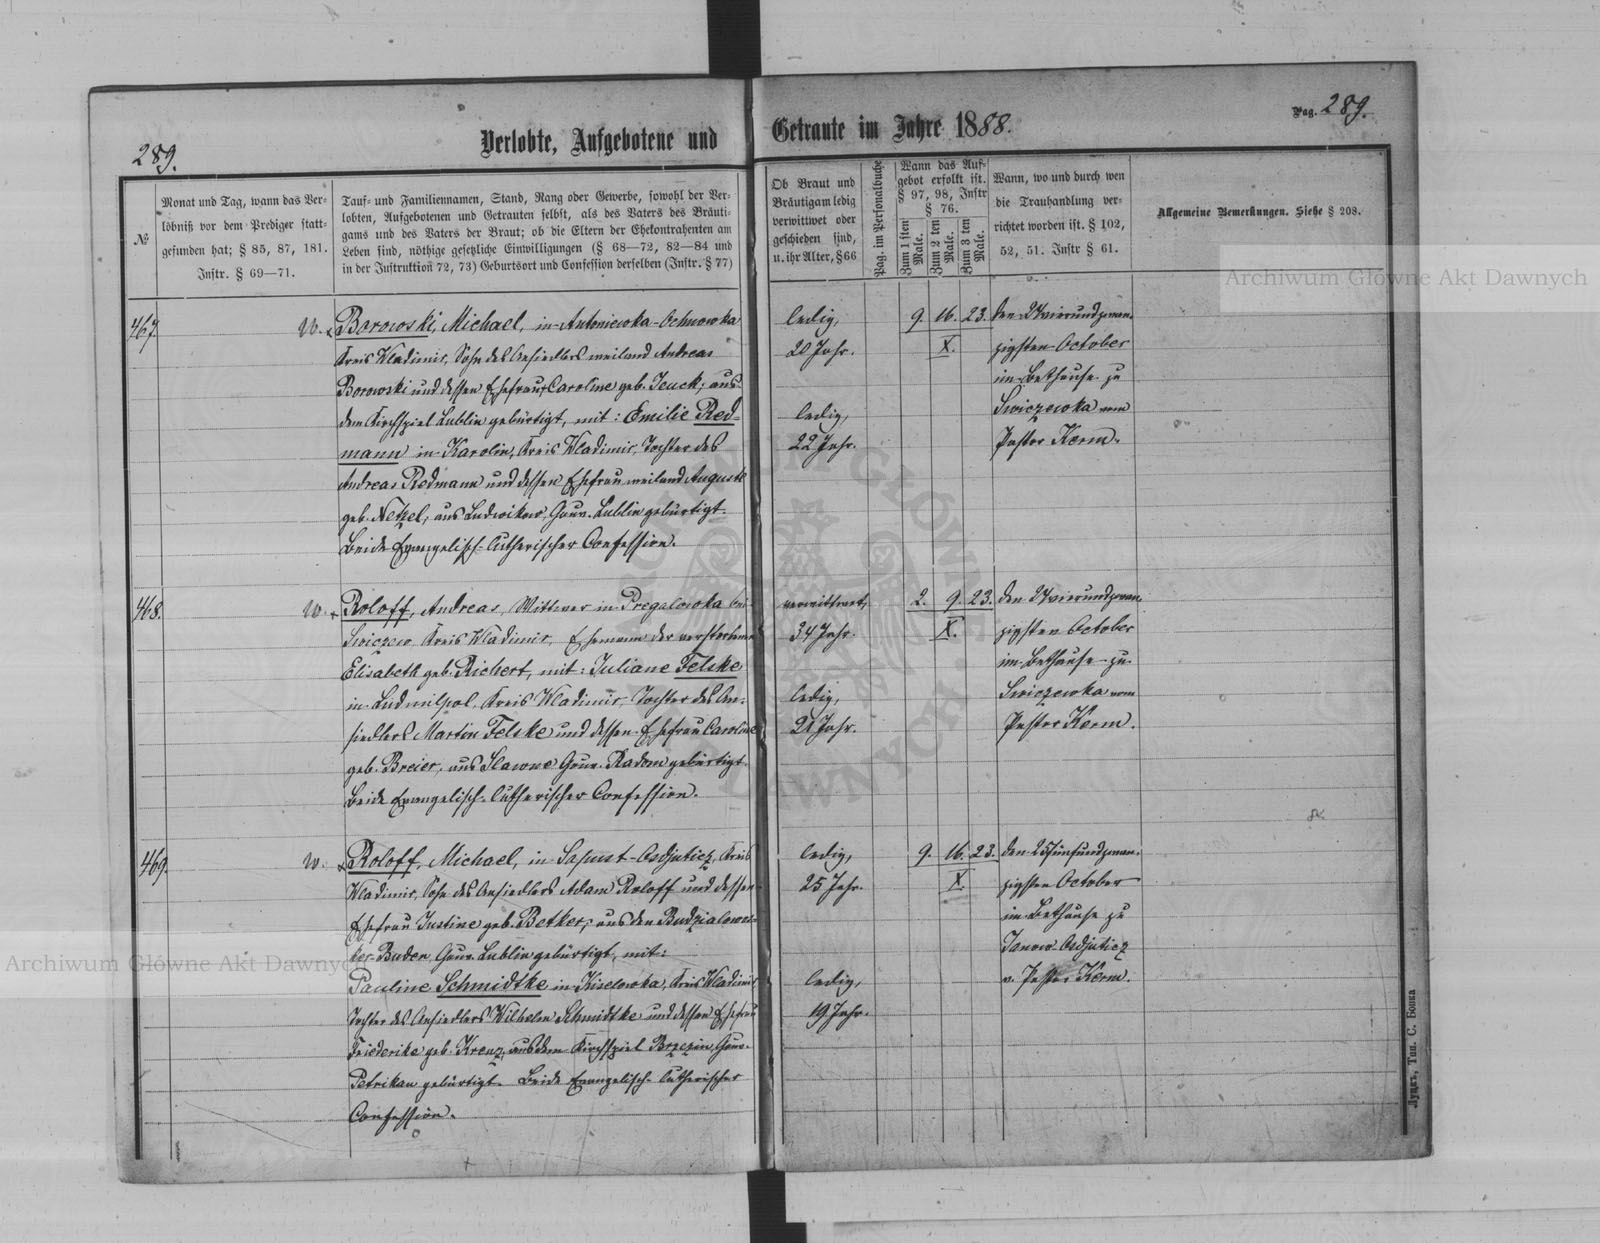 289.
Verlobte, Aufgebotene und Getraute im Jahre 1888.
Pag. 289.
№
Monat und Tag, wann das Ver-
löbniß vor dem Prediger statt-
gefunden hat; § 85, 87, 181.
Instr. § 69—71.
Tauf- und Familiennamen, Stand, Rang oder Gewerbe, sowohl der Ver-
lobten, Aufgebotenen und Getrauten selbst, als des Vaters des Bräuti-
gams und des Vaters der Braut; ob die Eltern der Ehekontrahenten am
Leben sind, nöthige gesetzliche Einwilligungen (§ 68—72, 82—84 und
in der Instruktion 72, 73) Geburtsort und Confession derselben (Instr. § 77)
Ob Braut und
Bräutigam ledig
verwittwet oder
geschieden sind,
u. ihr Alter, § 66
Pag. im Personalbuche
Wann das Auf-
gebot erfolkt ist.
§ 97, 98, Instr
§ 76.
Zum 1 sten
Male.
Zum 2 ten
Male.
Zum 3 ten
Male.
Wann, wo und durch wen
die Trauhandlung ver-
richtet worden ist. § 102,
52, 51. Instr § 61.
Allgemeine Bemerkungen. Siehe § 208.
467.
W.
Borowski, Michael, in Antoniewka-Ochnowka
Kreis Wladimir, Sohn des Ansiedlers weiland Andreas
Borowski und dessen Ehefrau Caroline geb. Jeuck, aus
dem Kirchspiel Lublin gebürtigt, mit: Emilie Red-
mann in Karolin, Kreis Wladimir, Tochter des
Andreas Redmann und dessen Ehefrau weiland Auguste
geb. Netzel, aus Ludwikow, Gouv. Lublin gebürtigt.
Beide Evangelisch-Lutherischer Confession.
ledig,
20 Jahr.
ledig,
22 Jahr.
9. 16. 23.
X.
den 24 vierundzwan-
zigsten October
im Bethause zu
Swiczewka vom
Pastor Kerm.
468.
W.
Roloff, Andreas, Wittwer in Pregalowka bei
Swiczew Kreis Wladimir, Ehemann der verstorbenen
Elisabeth geb. Richert, mit: Juliane Felske
in Ludmilpol, Kreis Wladimir, Tochter des An-
siedlers Martin Felske und dessen Ehefrau Caroline
geb. Breier, aus Slawne Gouv. Radom gebürtigt.
Beide Evangelisch-Lutherischer Confession.
verwittwet,
34 Jahr.
ledig,
21 Jahr.
2. 9. 23.
X.
den 24 vierundzwan-
zigsten October
im Bethause zu
Swiczewka vom
Pastor Kerm.
469.
W.
Roloff, Michael, in Sapust-Osdjuticz, Kreis
Wladimir, Sohn des Ansiedlers Adam Roloff und dessen
Ehefrau Justine geb. Betker, aus den Budzialowes-
ker-Buden, Gouv. Lublin gebürtigt, mit:
Pauline Schmidtke in Kiselowka, Kreis Wladimir
Tochter des Ansiedlers Wilhelm Schmidtke und dessen Ehefrau
Friederike geb. Kreuz, aus dem Kirchspiel Brzezin, Gouv.
Petrikau gebürtigt. Beide Evangelisch-Lutherischer
Confession.
ledig,
25 Jahr.
ledig,
19 Jahr.
9. 16. 23.
X.
den 25 fünfundzwan-
zigsten October
im Bethause zu
Janow-Osdjuticz
v. Pastor Kerm.
Луцкъ, Тип. С. Бонка
Archiwum Główne Akt Dawnych
Archiwum Główne Akt Dawnych